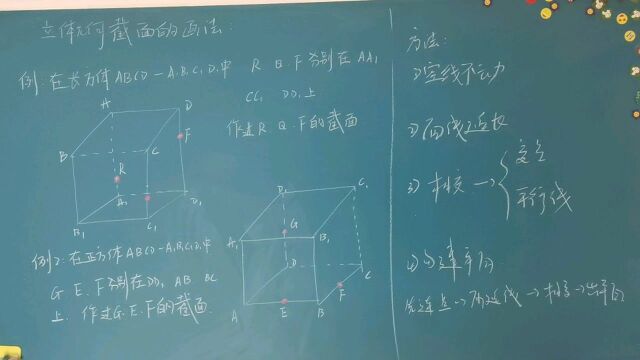 立体几何截面的画法:
例: 在长方体ABCD-A₁B₁C₁D₁中 R Q F分别在AA₁
CC₁ DD₁上
作过R Q F的截面
A
D
F
B
C
R
A₁
D₁
B₁
C₁
例2: 在正方体ABCD-A₁B₁C₁D₁中
G E F分别在DD₁ AB BC
上 作过G.E.F的截面
D₁
C₁
A₁
B₁
G
D
C
F
A
E
B
方法:
①实线不动
②两线
③ 找交 →
交点
平行线
④
先连点→ →找交→